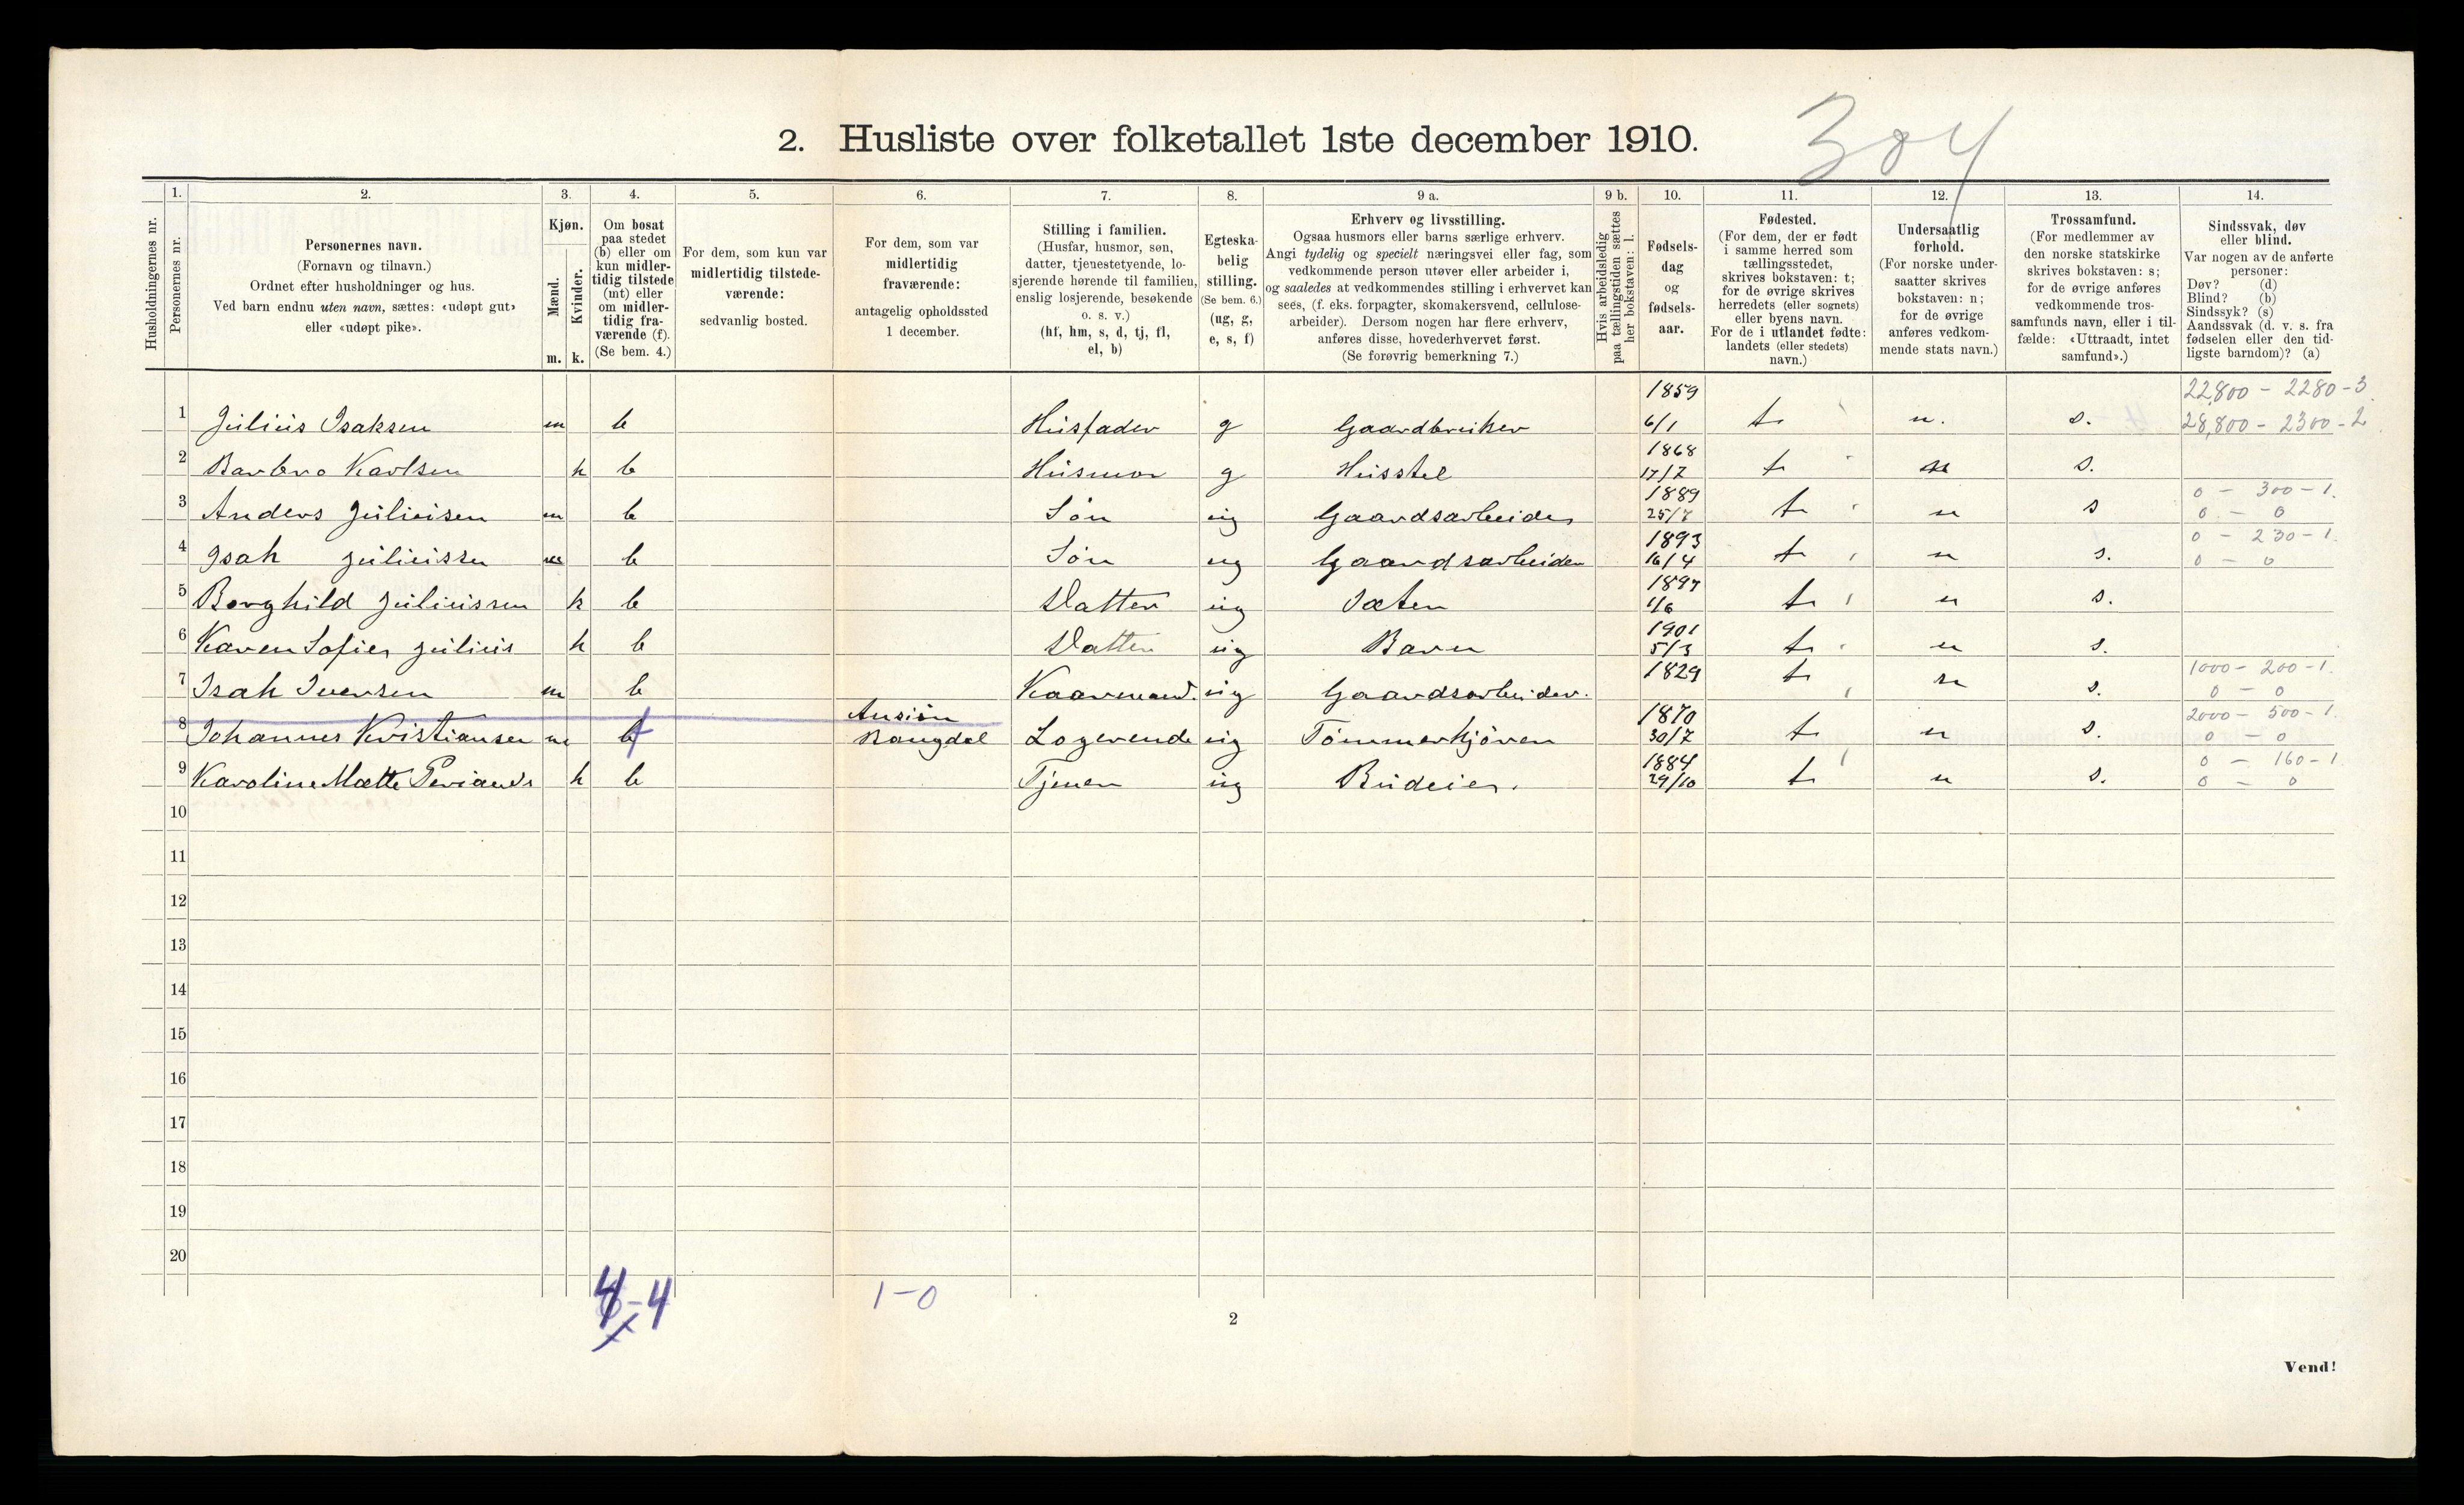 304
2. Husliste over folketallet 1ste december 1910.
Husholdningernes nr.
1. Personernes nr.
2. Personernes navn.
(Fornavn og tilnavn.)
Ordnet efter husholdninger og hus.
Ved barn endnu uten navn, sættes: «udøpt gut»
eller «udøpt pike».
3. Kjøn.
Mænd. m.
Kvinder. k.
4. Om bosat
paa stedet
(b) eller om
kun midler-
tidig tilstede
(mt) eller
om midler-
tidig fra-
værende (f).
(Se bem. 4.)
5. For dem, som kun var
midlertidig tilstede-
værende:
sedvanlig bosted.
6. For dem, som var
midlertidig
fraværende:
antagelig opholdssted
1 december.
7. Stilling i familien.
(Husfar, husmor, søn,
datter, tjenestetyende, lo-
sjerende hørende til familien,
enslig losjerende, besøkende
o. s. v.)
(hf, hm, s, d, tj, fl,
el, b)
8. Egteska-
belig
stilling.
(Se bem. 6.)
(ug, g,
e, s, f)
9 a. Erhverv og livsstilling.
Ogsaa husmors eller barns særlige erhverv.
Angi tydelig og specielt næringsvei eller fag, som
vedkommende person utøver eller arbeider i,
og saaledes at vedkommendes stilling i erhvervet kan
sees, (f. eks. forpagter, skomakersvend, cellulose-
arbeider). Dersom nogen har flere erhverv,
anføres disse, hovederhvervet først.
(Se forøvrig bemerkning 7.)
9 b. Hvis arbeidsledig
paa tællingstiden sættes
her bokstaven: l.
10. Fødsels-
dag
og
fødsels-
aar.
11. Fødested.
(For dem, der er født
i samme herred som
tællingsstedet,
skrives bokstaven: t;
for de øvrige skrives
herredets (eller sognets)
eller byens navn.
For de i utlandet fødte:
landets (eller stedets)
navn.)
12. Undersaatlig
forhold.
(For norske under-
saatter skrives
bokstaven: n;
for de øvrige
anføres vedkom-
mende stats navn.)
13. Trossamfund.
(For medlemmer av
den norske statskirke
skrives bokstaven: s;
for de øvrige anføres
vedkommende tros-
samfunds navn, eller i til-
fælde: «Uttraadt, intet
samfund».)
14. Sindssvak, døv
eller blind.
Var nogen av de anførte
personer:
Døv? (d)
Blind? (b)
Sindssyk? (s)
Aandssvak (d. v. s. fra
fødselen eller den tid-
ligste barndom)? (a)
1859 22,800 - 2280-3
1 Julius Isaksen m b Husfader g Gaardbruker 6/1 t n. s. 28,800 - 2300-2
1868
2 Barbro Karlsen k b Husmor g Husstel 17/7 t n s.
1889 0 - 300-1.
3 Anders Juliusen m b Søn ug Gaardsarbeider 25/7 t n s 0 - 0
1893 0 - 230-1.
4 Isak Juliussen m b Søn ug Gaardsarbeider 16/4 t n s. 0 - 0
1897
5 Borghild Juliussen k b Datter ug Datter 1/6 t n s.
1901
6 Karen Sofier Julius k b Datter ug Barn 5/3 t n s.
1829 1000 - 200-1.
7 Isak Iversen m b Kaarmand. ug Gaardsarbeider. t n s. 0 - 0
1870 2000 - 500-1.
8 Johannes Kristiansen m f Rangdal Logerende ug Tömmerkjörer 30/7 t n s. 0 - 0
1884 0 - 160-1
9 Karoline Mætte k b Tjener ug Budeier. 29/10 t n s. 0 - 0
10
11
12
13
14
15
16
17
18
19
20
4-4 1-0
2
Vend!